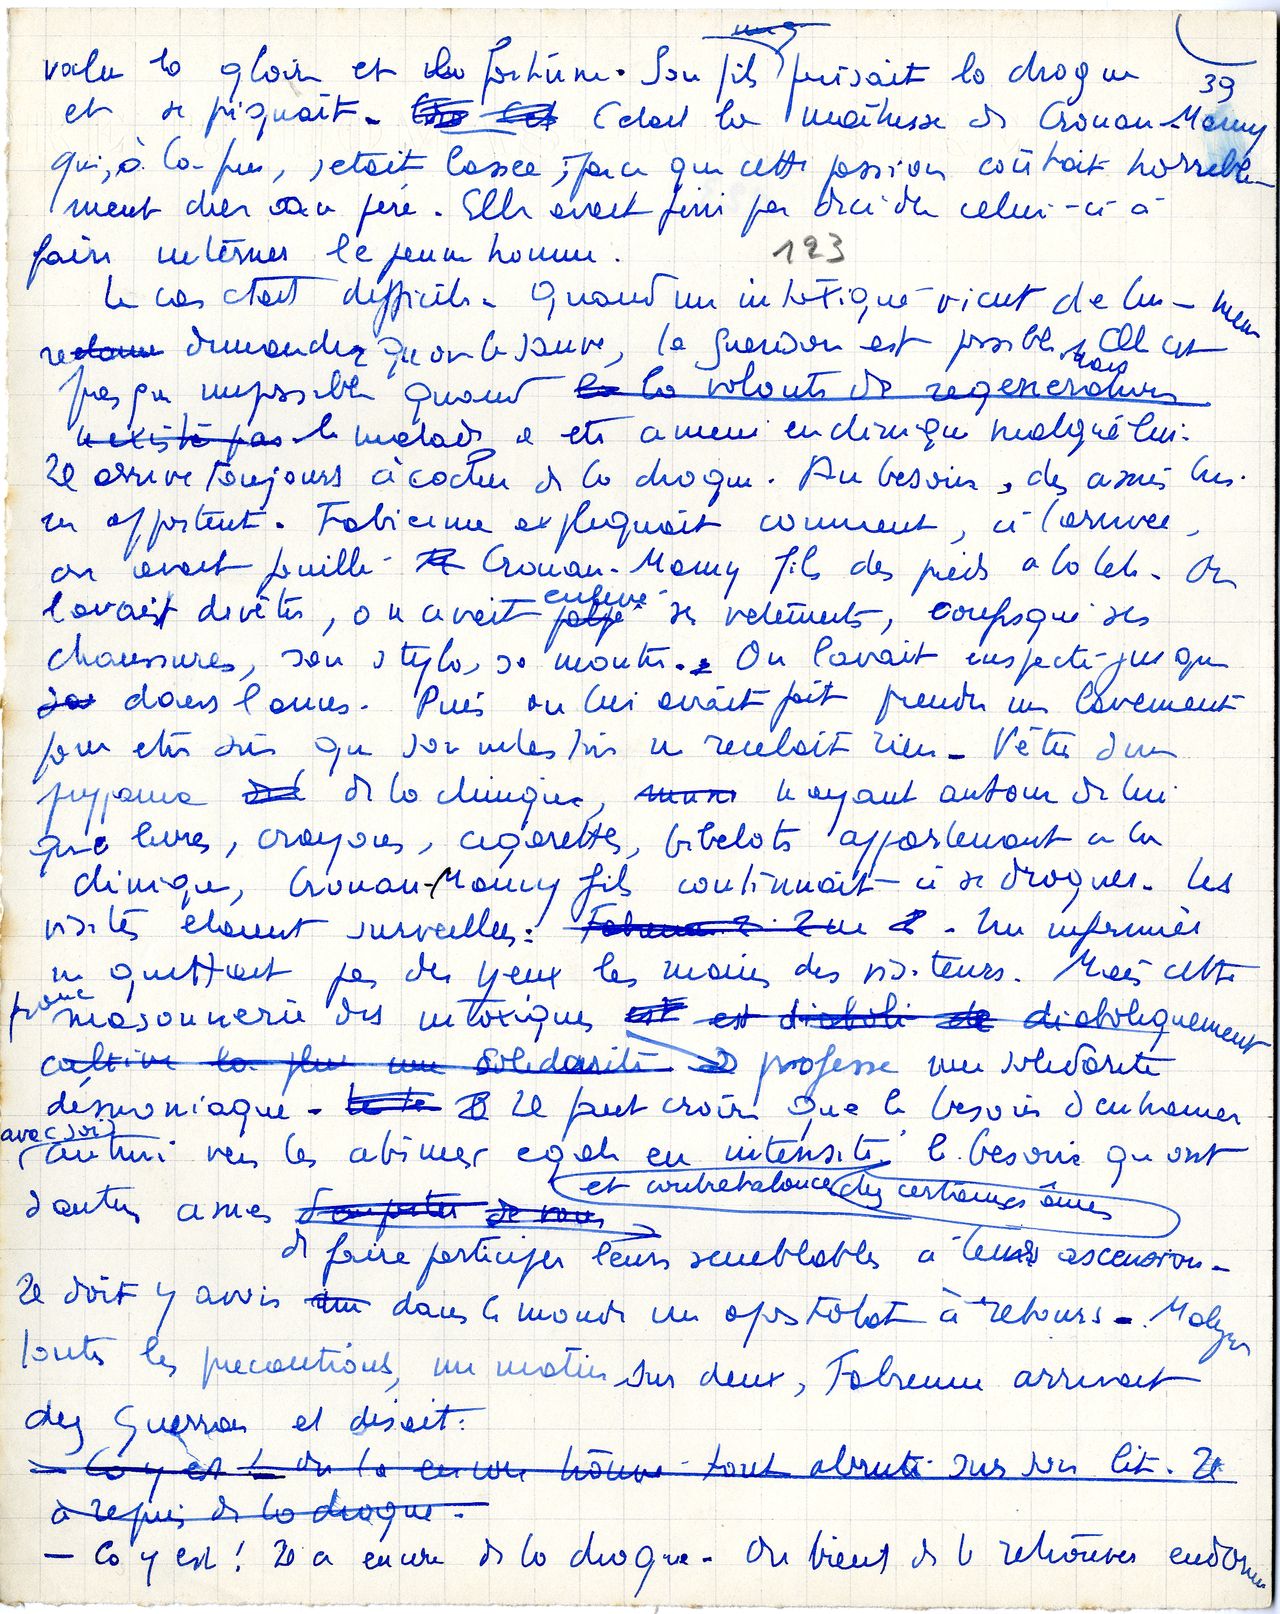 39
valu la gloire et la fortune. Son fils prisait la drogue
et se piquait. C'était la maîtresse de Cronan-Mamy
qui, à la fin, s'était lassée, parce que cette passion coûtait horrible-
ment cher au père. Elle avait fini par décider celui-ci à
faire interner le jeune homme.
123
Le cas était difficile. Quand un intoxiqué vient de lui-même
demander qu'on le sauve, la guérison est possible, mais elle est
presque impossible quand la volonté de régénération
n'existe pas le malade a été amené en clinique malgré lui.
Il arrive toujours à cacher de la drogue. Au besoin, des amis lui
en apportent. Fabienne expliquait comment, à l'arrivée,
on avait fouillé Cronan-Mamy fils des pieds à la tête. On
l'avait dévêtu, on avait enlevé ses vêtements, confisqué ses
chaussures, son stylo, sa montre. On l'avait inspecté jusque
dans l'anus. Puis on lui avait fait prendre un lavement
pour être sûr que son intestin ne recelait rien. Vêtu d'un
pyjama de la clinique, n'ayant autour de lui
que livres, crayons, cigarettes, bibelots appartenant à la
clinique, Cronan-Mamy fils continuait à se droguer. Les
visites étaient surveillées: Un infirmier
ne quittait pas des yeux les mains des visiteurs. Mais cette
franc maçonnerie des intoxiqués est diaboli de diaboliquement
cultive la plus une solidarité professe une solidarité
démoniaque. Il faut croire que le besoin d'entraîner
avec soi
autrui vers les abîmes égale en intensité le besoin qu'ont
et contrebalance chez certaines âmes
d'autres âmes
de faire participer leurs semblables à leur ascension.
Il doit y avoir dans le monde un apostolat à rebours. Malgré
toutes les précautions, un matin sur deux, Fabienne arrivait
chez Guerran et disait:
— Ca y est ! On l'a encore trouvé tout abruti sur son lit. Il
a repris de la drogue.
— Ca y est ! Il a encore de la drogue. On vient de le retrouver endormi